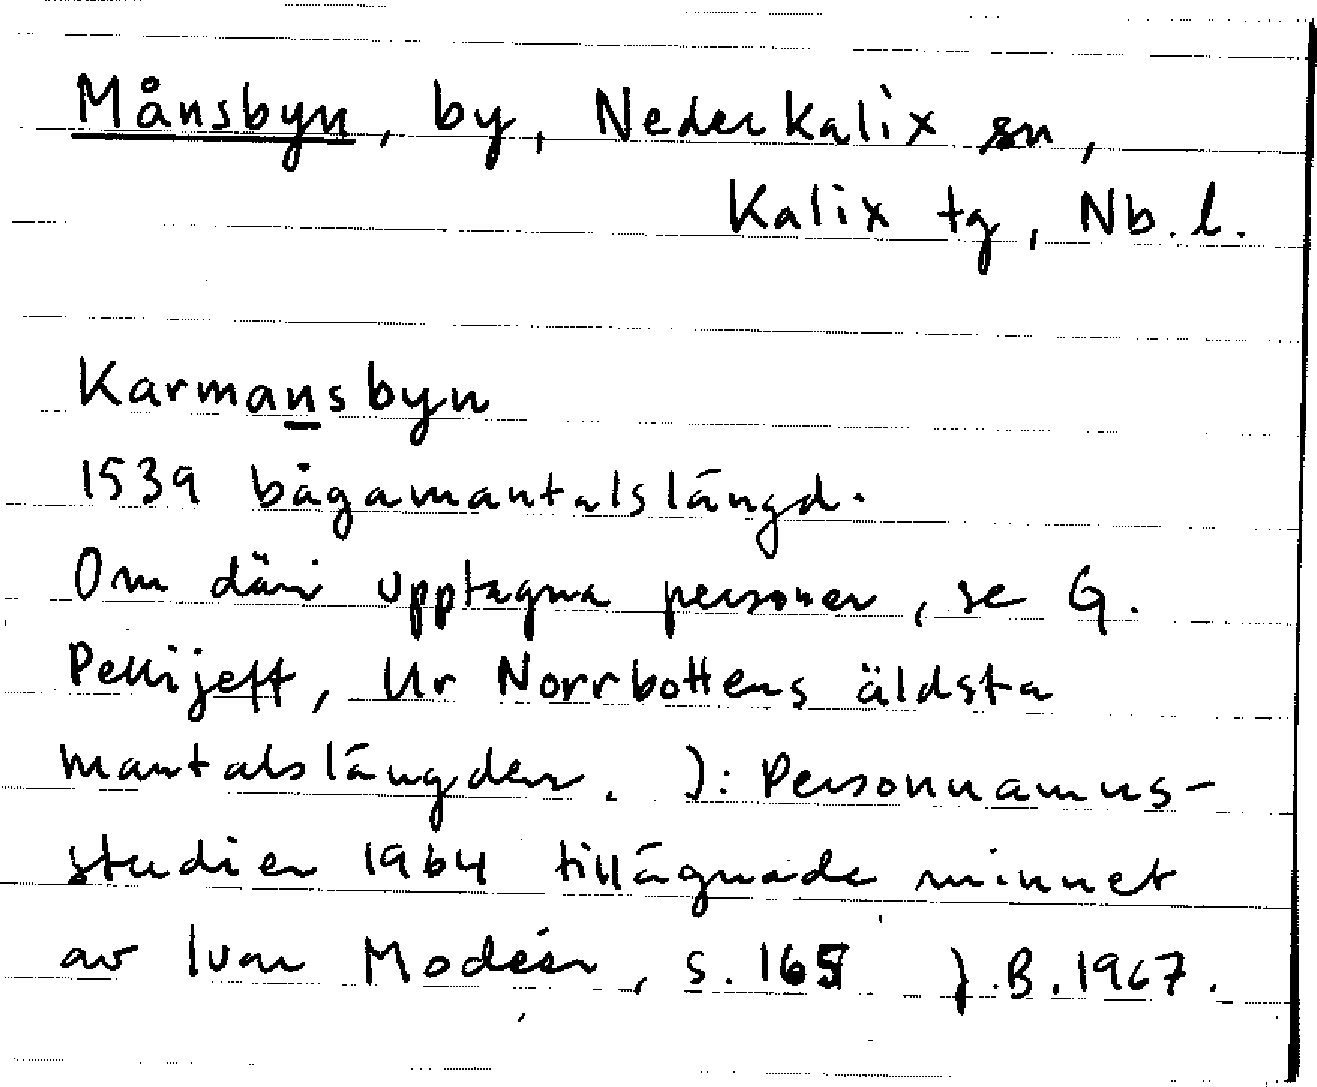 Månsbyn, by, Nederkalix sn,
Kalix tg, Nb. l.
Karmansbyn
1539 bågamantalslängd.
Om däri upptagna personer, se G.
Pellijeff, Ur Norrbottens äldsta
mantalslängder. I: Personnamns-
studier 1964 tillägnade minnet
av Ivar Modéer, s. 165 J.B. 1967.